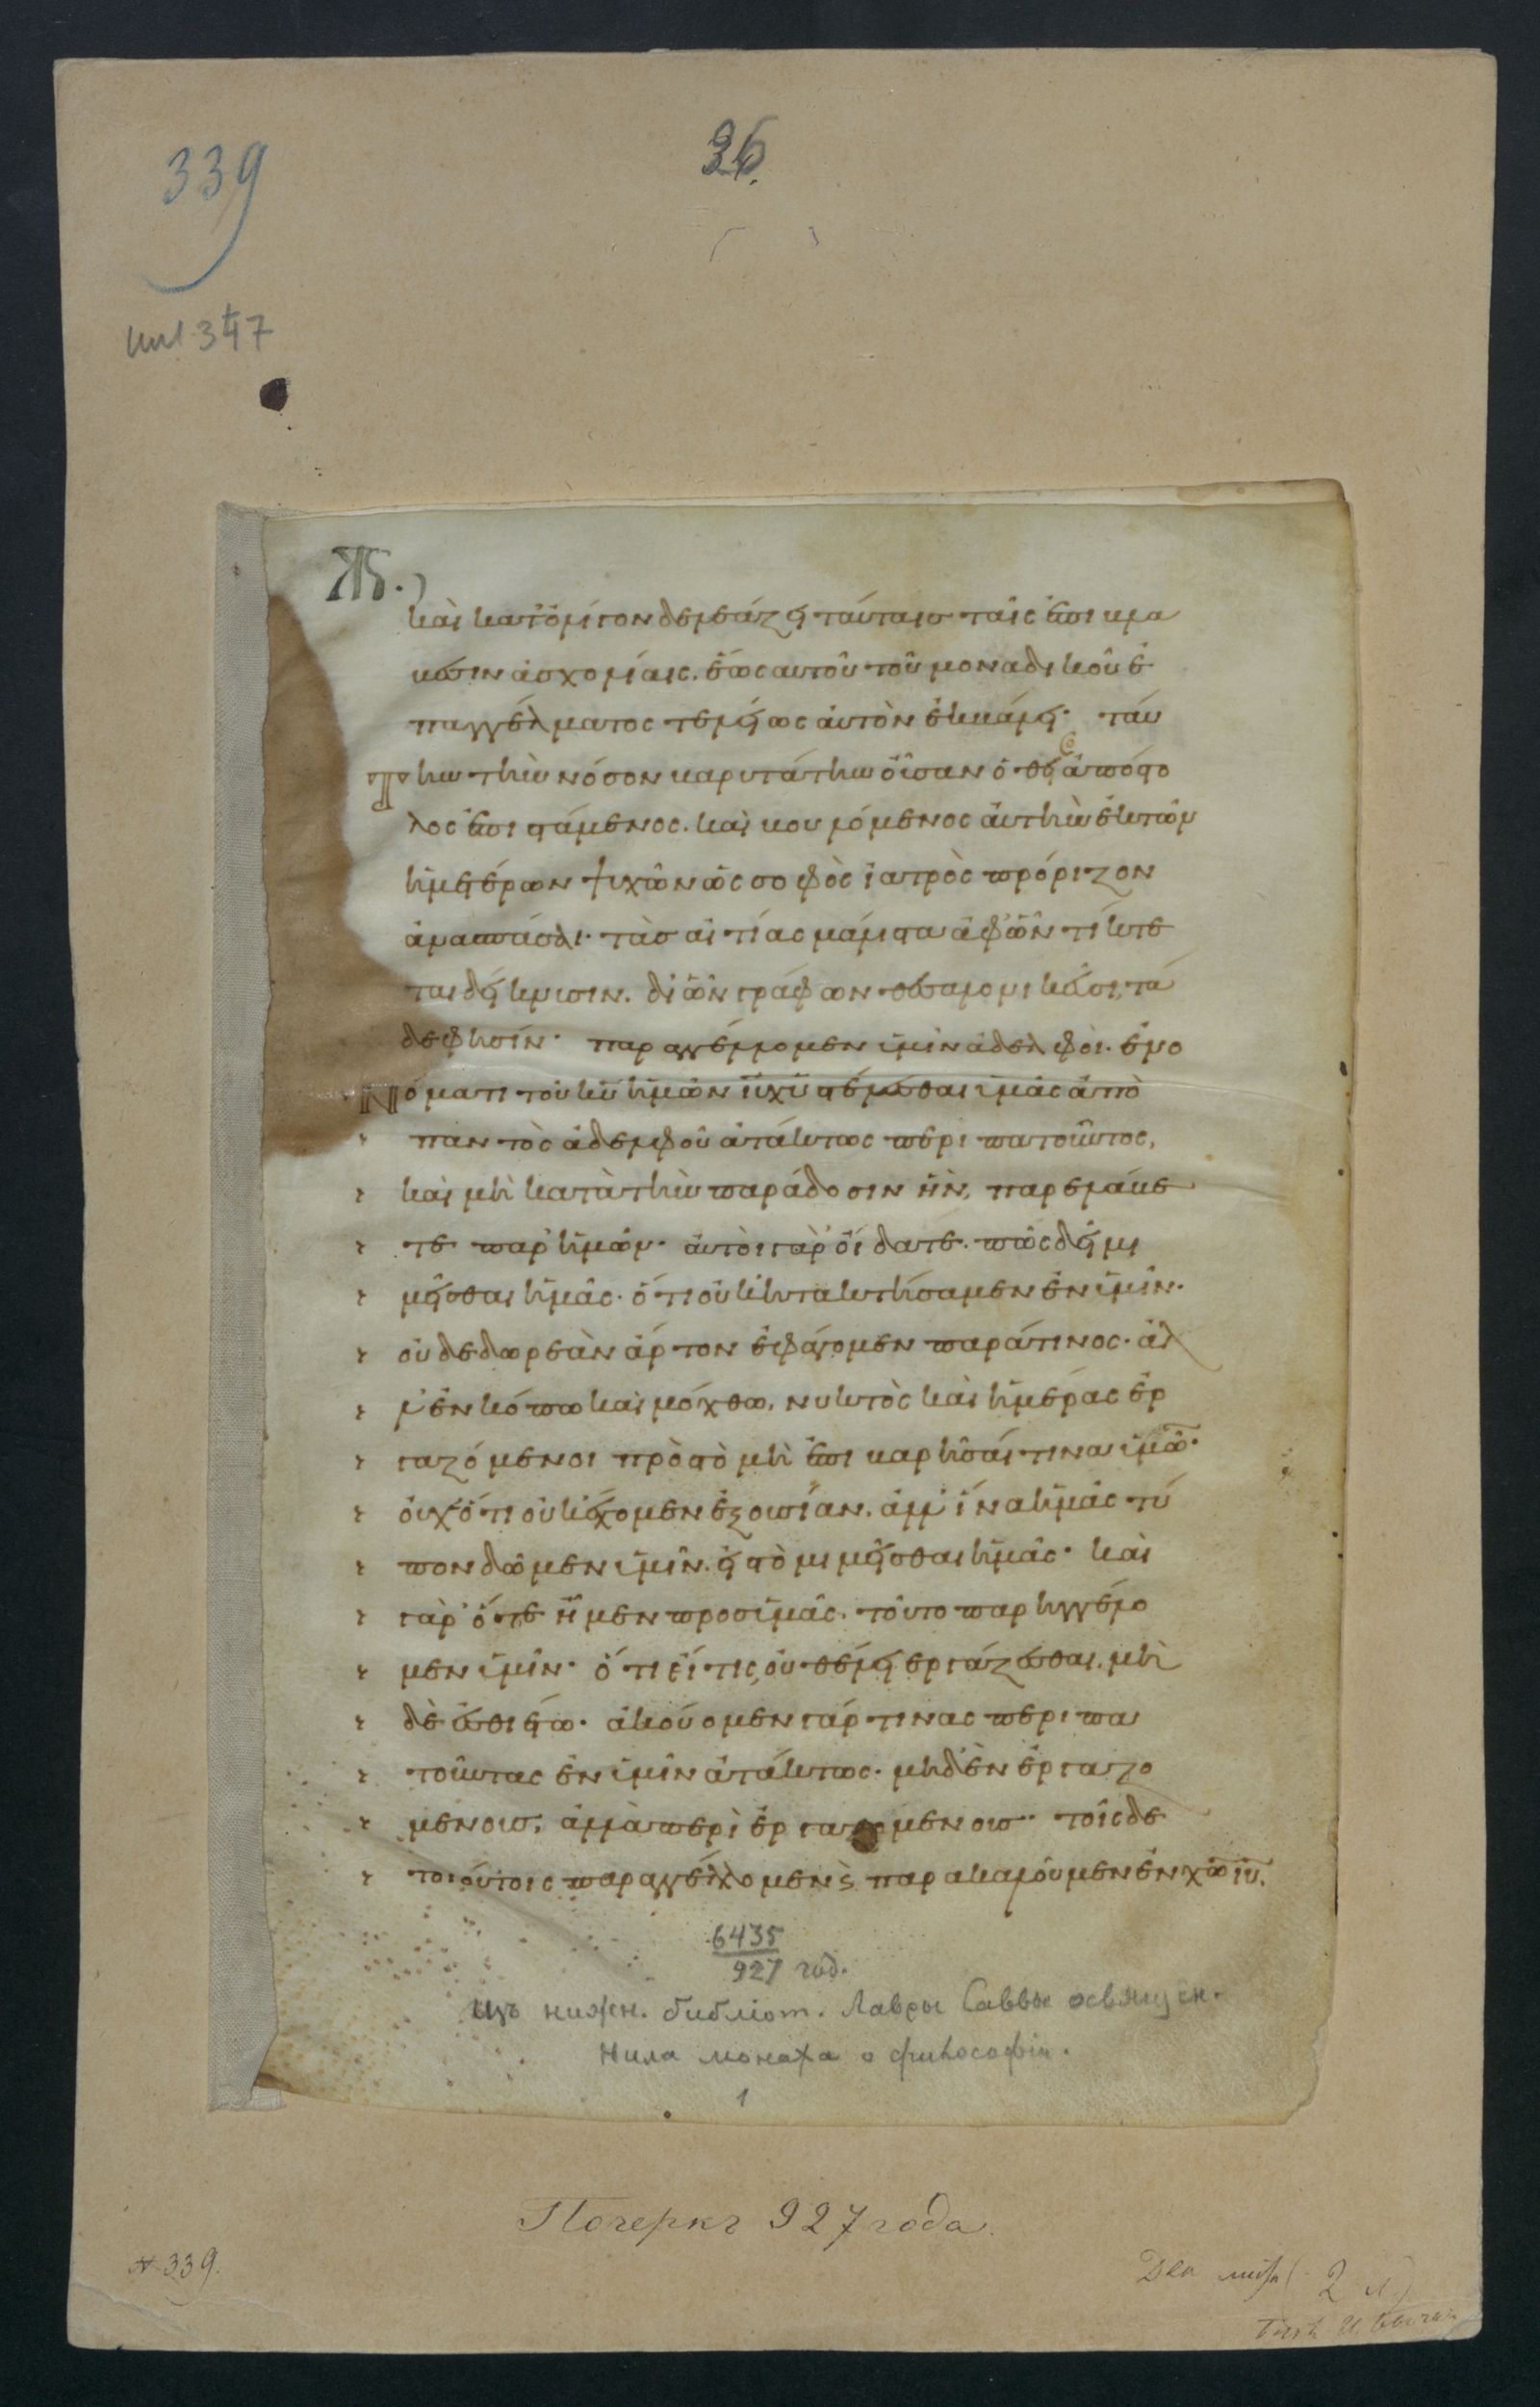 339
36.
347
καὶ κατολίγον δελεάζει ταύταισ ταῖς ἐπιβλα
βέσιν ἀσχολίαις. ἕως αυτοῦ τοῦ μοναδικοῦ ἐ
παγγέλματος τελείως ἀυτὸν ἐκβάλει· ταύ
την τὴν νόσον βαρυτάτην οὖσαν ὁ θεῖος ἀπόστο
λος ἐπιστάμενος. καὶ βουλόμενος ἀυτὴν ἐκ τῶν
ἡμετέρων ψυχῶν ὡς σοφὸς ἰατρὸς πρόριζον
ἀνασπάσαι· τὰσ αἰτίας μάλιστα ἀφ' ὧν τίκτε
ται δείκνυσιν. δι' ὧν γράφων θεσαλονικεῦσι, τά
δε φησίν· παραγγέλλομεν ὑμῖν ἀδελφοὶ. ἐν ὀ
Νόματι τοῦ κ̅υ̅ ἡμῶν ι̅υ̅ χ̅υ̅ στέλλεσθαι ὑμᾶς ἀπὸ
παντὸς ἀδελφοῦ ἀτάκτως περιπατοῦντος,
καὶ μὴ κατὰ τὴν παράδοσιν ἣν, παρελάβε
τε παρ' ἡμῶν· ἀυτὸι γὰρ ὅιδατε. πῶς δεῖ μι
μεῖσθαι ἡμᾶς· ὅτι οὐκ ἠτακτήσαμεν ἐν ὑμῖν·
οὐδε δωρεὰν ἄρτον ἐφάγομεν παρά τινος· ἀλ
λ' ἐν κόπω καὶ μόχθω, νυκτὸς καὶ ἡμέρας ἐρ
γαζόμενοι πρὸς τὸ μὴ ἐπιβαρῆσαί τινα ὑμῶ̅·
οὐχ' ὅτι οὐκ ἔχομεν ἐξουσίαν. ἀλλ' ἵνα ἡμᾶς τύ
πον δῶμεν ὑμῖν. εἰς τὸ μιμεῖσθαι ἡμᾶς· καὶ
γὰρ ὅτε ἦμεν προσ ὑμᾶς. τοῦτο παρηγγέλο
μεν ὑμῖν· ὅτι εἴ τις, οὐ θέλει ἐργάζεσθαι. μὴ
δὲ ἐσθιέτω· ἀκούομεν γάρ τινας περιπα
τοῦντας ἐν ὑμῖν ἀτάκτως· μηδὲν ἐργαζο
μένουσ, ἀλλὰ περιεργαζομένουσ· τοῖς δε
τοιούτοις παραγγέλλομεν ϛ παρακαλοῦμεν ἐν χ̅ω̅ ι̅υ̅,
6435
927 год.
Изъ нижн. библіот. Лавры Саввы освящен.
Нила монаха о философіи.
1
Почеркъ 927 года.
№ 339.
Два листа 2 л.